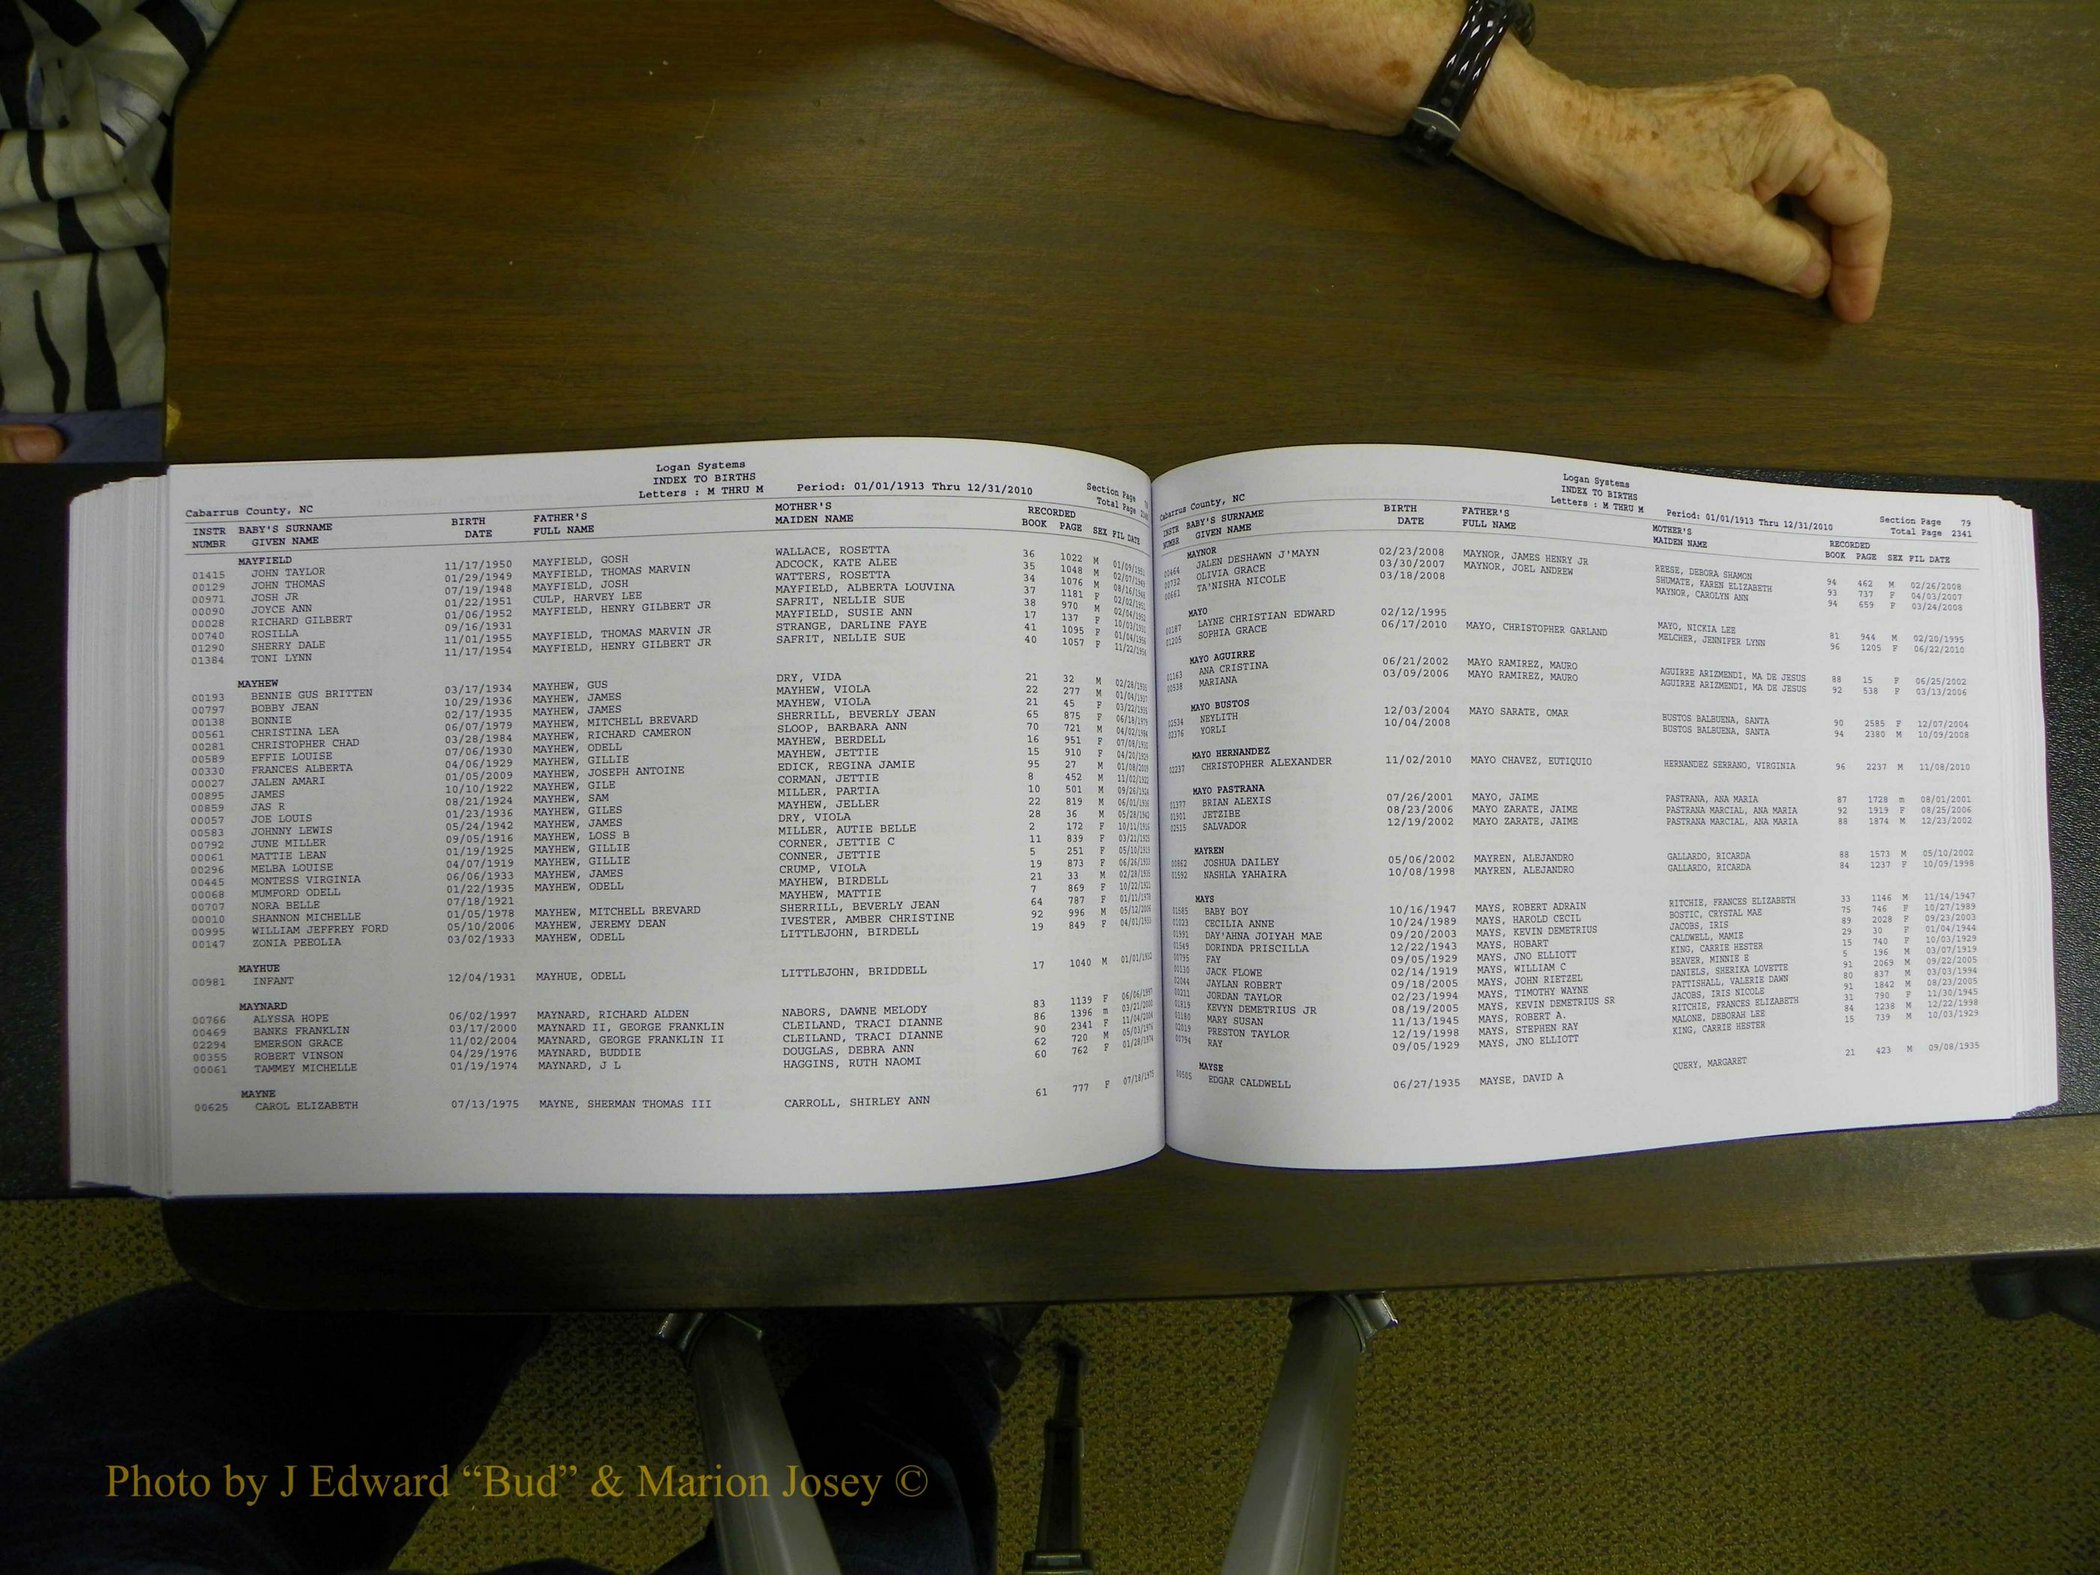 Logan Systems
INDEX TO BIRTHS
Letters : M THRU M Period: 01/01/1913 Thru 12/31/2010
Section Page
Total Page
Cabarrus County, NC
INSTR BABY'S SURNAME BIRTH FATHER'S MOTHER'S RECORDED
NUMBR GIVEN NAME DATE FULL NAME MAIDEN NAME BOOK PAGE SEX FIL DATE
MAYFIELD
01415 JOHN TAYLOR 11/17/1950 MAYFIELD, GOSH WALLACE, ROSETTA 36 1022 M 01/09/1951
00129 JOHN THOMAS 01/29/1949 MAYFIELD, THOMAS MARVIN ADCOCK, KATE ALEE 35 1048 M 02/07/1949
00971 JOSH JR 07/19/1948 MAYFIELD, JOSH WATTERS, ROSETTA 34 1076 M 08/16/1948
00090 JOYCE ANN 01/22/1951 CULP, HARVEY LEE MAYFIELD, ALBERTA LOUVINA 37 1181 F 02/02/1951
00028 RICHARD GILBERT 01/06/1952 MAYFIELD, HENRY GILBERT JR SAFRIT, NELLIE SUE 38 970 M 02/04/1952
00740 ROSILLA 09/16/1931 MAYFIELD, SUSIE ANN 17 137 F 10/03/1931
01290 SHERRY DALE 11/01/1955 MAYFIELD, THOMAS MARVIN JR STRANGE, DARLINE FAYE 41 1095 F 01/04/1956
01384 TONI LYNN 11/17/1954 MAYFIELD, HENRY GILBERT JR SAFRIT, NELLIE SUE 40 1057 F 11/22/1954
MAYHEW
00193 BENNIE GUS BRITTEN 03/17/1934 MAYHEW, GUS DRY, VIDA 21 32 M 02/28/1935
00797 BOBBY JEAN 10/29/1936 MAYHEW, JAMES MAYHEW, VIOLA 22 277 M 01/04/1937
00138 BONNIE 02/17/1935 MAYHEW, JAMES MAYHEW, VIOLA 21 45 F 03/22/1935
00561 CHRISTINA LEA 06/07/1979 MAYHEW, MITCHELL BREVARD SHERRILL, BEVERLY JEAN 65 875 F 06/18/1979
00281 CHRISTOPHER CHAD 03/28/1984 MAYHEW, RICHARD CAMERON SLOOP, BARBARA ANN 70 721 M 04/02/1984
00589 EFFIE LOUISE 07/06/1930 MAYHEW, ODELL MAYHEW, BERDELL 16 951 F 07/08/1930
00330 FRANCES ALBERTA 04/06/1929 MAYHEW, GILLIE MAYHEW, JETTIE 15 910 F 04/20/1929
00027 JALEN AMARI 01/05/2009 MAYHEW, JOSEPH ANTOINE EDICK, REGINA JAMIE 95 27 M 01/08/2009
00895 JAMES 10/10/1922 MAYHEW, GILE CORMAN, JETTIE 8 452 M 11/02/1922
00859 JAS R 08/21/1924 MAYHEW, SAM MILLER, PARTIA 10 501 M 09/26/1924
00057 JOE LOUIS 01/23/1936 MAYHEW, GILES MAYHEW, JELLER 22 819 M 06/01/1936
00583 JOHNNY LEWIS 05/24/1942 MAYHEW, JAMES DRY, VIOLA 28 36 M 05/28/1942
00792 JUNE MILLER 09/05/1916 MAYHEW, LOSS B MILLER, AUTIE BELLE 2 172 F 10/11/1916
00061 MATTIE LEAN 01/19/1925 MAYHEW, GILLIE CORNER, JETTIE C 11 839 F 03/21/1925
00296 MELBA LOUISE 04/07/1919 MAYHEW, GILLIE CONNER, JETTIE 5 251 F 05/10/1919
00445 MONTESS VIRGINIA 06/06/1933 MAYHEW, JAMES CRUMP, VIOLA 19 873 F 06/26/1933
00068 MUMFORD ODELL 01/22/1935 MAYHEW, ODELL MAYHEW, BIRDELL 21 33 M 02/28/1935
00707 NORA BELLE 07/18/1921 MAYHEW, MATTIE 7 869 F 10/22/1921
00010 SHANNON MICHELLE 01/05/1978 MAYHEW, MITCHELL BREVARD SHERRILL, BEVERLY JEAN 64 787 F 01/11/1978
00995 WILLIAM JEFFREY FORD 05/10/2006 MAYHEW, JEREMY DEAN IVESTER, AMBER CHRISTINE 92 996 M 05/12/2006
00147 ZONIA PEEOLIA 03/02/1933 MAYHEW, ODELL LITTLEJOHN, BIRDELL 19 849 F 04/01/1933
MAYHUE
00981 INFANT 12/04/1931 MAYHUE, ODELL LITTLEJOHN, BRIDDELL 17 1040 M 01/01/1932
MAYNARD
00766 ALYSSA HOPE 06/02/1997 MAYNARD, RICHARD ALDEN NABORS, DAWNE MELODY 83 1139 F 06/06/1997
00469 BANKS FRANKLIN 03/17/2000 MAYNARD II, GEORGE FRANKLIN CLEILAND, TRACI DIANNE 86 1396 m 03/21/2000
02294 EMERSON GRACE 11/02/2004 MAYNARD, GEORGE FRANKLIN II CLEILAND, TRACI DIANNE 90 2341 F 11/04/2004
00355 ROBERT VINSON 04/29/1976 MAYNARD, BUDDIE DOUGLAS, DEBRA ANN 62 720 M 05/03/1976
00061 TAMMEY MICHELLE 01/19/1974 MAYNARD, J L HAGGINS, RUTH NAOMI 60 762 F 01/28/1974
MAYNE
00625 CAROL ELIZABETH 07/13/1975 MAYNE, SHERMAN THOMAS III CARROLL, SHIRLEY ANN 61 777 F 07/18/1975
Logan Systems
INDEX TO BIRTHS
Letters : M THRU M Period: 01/01/1913 Thru 12/31/2010
Section Page 79
Total Page 2341
Cabarrus County, NC
INSTR BABY'S SURNAME BIRTH FATHER'S MOTHER'S RECORDED
NUMBR GIVEN NAME DATE FULL NAME MAIDEN NAME BOOK PAGE SEX FIL DATE
MAYNOR
00464 JALEN DESHAWN J'MAYN 02/23/2008 MAYNOR, JAMES HENRY JR REESE, DEBORA SHAMON 94 462 M 02/26/2008
00732 OLIVIA GRACE 03/30/2007 MAYNOR, JOEL ANDREW SHUMATE, KAREN ELIZABETH 93 737 F 04/03/2007
00661 TA'NISHA NICOLE 03/18/2008 MAYNOR, CAROLYN ANN 94 659 F 03/24/2008
MAYO
00187 LAYNE CHRISTIAN EDWARD 02/12/1995 MAYO, NICKIA LEE 81 944 M 02/20/1995
01205 SOPHIA GRACE 06/17/2010 MAYO, CHRISTOPHER GARLAND MELCHER, JENNIFER LYNN 96 1205 F 06/22/2010
MAYO AGUIRRE
01163 ANA CRISTINA 06/21/2002 MAYO RAMIREZ, MAURO AGUIRRE ARIZMENDI, MA DE JESUS 88 15 F 06/25/2002
00538 MARIANA 03/09/2006 MAYO RAMIREZ, MAURO AGUIRRE ARIZMENDI, MA DE JESUS 92 538 F 03/13/2006
MAYO BUSTOS
02534 NEYLITH 12/03/2004 MAYO SARATE, OMAR BUSTOS BALBUENA, SANTA 90 2585 F 12/07/2004
02376 YORLI 10/04/2008 BUSTOS BALBUENA, SANTA 94 2380 M 10/09/2008
MAYO HERNANDEZ
02237 CHRISTOPHER ALEXANDER 11/02/2010 MAYO CHAVEZ, EUTIQUIO HERNANDEZ SERRANO, VIRGINIA 96 2237 M 11/08/2010
MAYO PASTRANA
01377 BRIAN ALEXIS 07/26/2001 MAYO, JAIME PASTRANA, ANA MARIA 87 1728 m 08/01/2001
01901 JETZIBE 08/23/2006 MAYO ZARATE, JAIME PASTRANA MARCIAL, ANA MARIA 92 1919 F 08/25/2006
02515 SALVADOR 12/19/2002 MAYO ZARATE, JAIME PASTRANA MARCIAL, ANA MARIA 88 1874 M 12/23/2002
MAYREN
00862 JOSHUA DAILEY 05/06/2002 MAYREN, ALEJANDRO GALLARDO, RICARDA 88 1573 M 05/10/2002
01592 NASHLA YAHAIRA 10/08/1998 MAYREN, ALEJANDRO GALLARDO, RICARDA 84 1237 F 10/09/1998
MAYS
01585 BABY BOY 10/16/1947 MAYS, ROBERT ADRAIN RITCHIE, FRANCES ELIZABETH 33 1146 M 11/14/1947
01023 CECILIA ANNE 10/24/1989 MAYS, HAROLD CECIL BOSTIC, CRYSTAL MAE 75 746 F 10/27/1989
01991 DAY'AHNA JOIYAH MAE 09/20/2003 MAYS, KEVIN DEMETRIUS JACOBS, IRIS 89 2028 F 09/23/2003
01549 DORINDA PRISCILLA 12/22/1943 MAYS, HOBART CALDWELL, MAMIE 29 30 F 01/04/1944
00795 FAY 09/05/1929 MAYS, JNO ELLIOTT KING, CARRIE HESTER 15 740 F 10/03/1929
00130 JACK FLOWE 02/14/1919 MAYS, WILLIAM C BEAVER, MINNIE E 5 196 M 03/07/1919
02044 JAYLAN ROBERT 09/18/2005 MAYS, JOHN RIETZEL DANIELS, SHERIKA LOVETTE 91 2069 M 09/22/2005
00211 JORDAN TAYLOR 02/23/1994 MAYS, TIMOTHY WAYNE PATTISHALL, VALERIE DAWN 80 837 M 03/03/1994
01819 KEVYN DEMETRIUS JR 08/19/2005 MAYS, KEVIN DEMETRIUS SR JACOBS, IRIS NICOLE 91 1842 M 08/23/2005
01180 MARY SUSAN 11/13/1945 MAYS, ROBERT A. RITCHIE, FRANCES ELIZABETH 31 790 F 11/30/1945
02019 PRESTON TAYLOR 12/19/1998 MAYS, STEPHEN RAY MALONE, DEBORAH LEE 84 1238 M 12/22/1998
00794 RAY 09/05/1929 MAYS, JNO ELLIOTT KING, CARRIE HESTER 15 739 M 10/03/1929
MAYSE
00505 EDGAR CALDWELL 06/27/1935 MAYSE, DAVID A QUERY, MARGARET 21 423 M 09/08/1935
Photo by J Edward “Bud” & Marion Josey ©